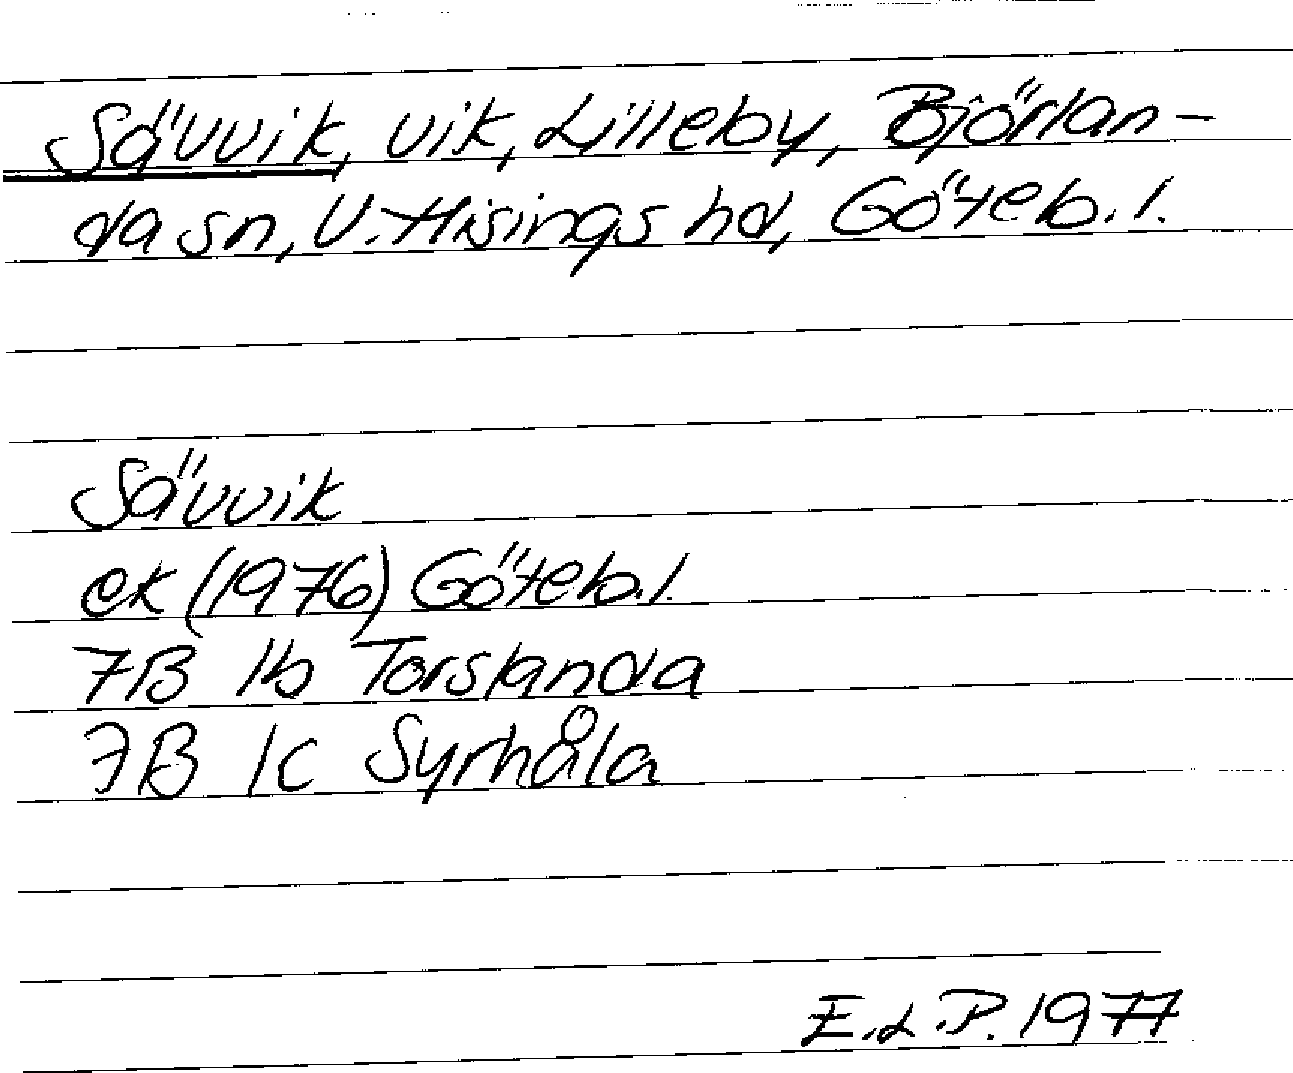 Sävvik, vik, Lilleby, Björlan-
da sn, V. Hisings hd, Göteb. l.
Sävvik
ek (1976) Göteb. l.
7B 1b Torslanda
7B 1c Syrhåla
E.L.P. 1977